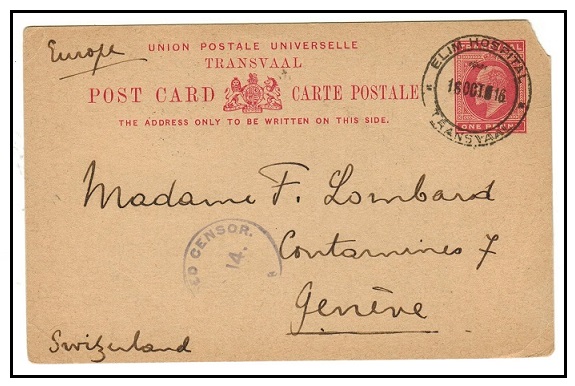 Europe
UNION POSTALE UNIVERSELLE
TRANSVAAL
POST CARD CARTE POSTALE
THE ADDRESS ONLY TO BE WRITTEN ON THIS SIDE.
ELIM HOSPITAL
16 OCT 16
TRANSVAAL
ONE PENNY
Madame F. Lombard
Contamines 7
Genève
Switzerland
CENSOR.
14.